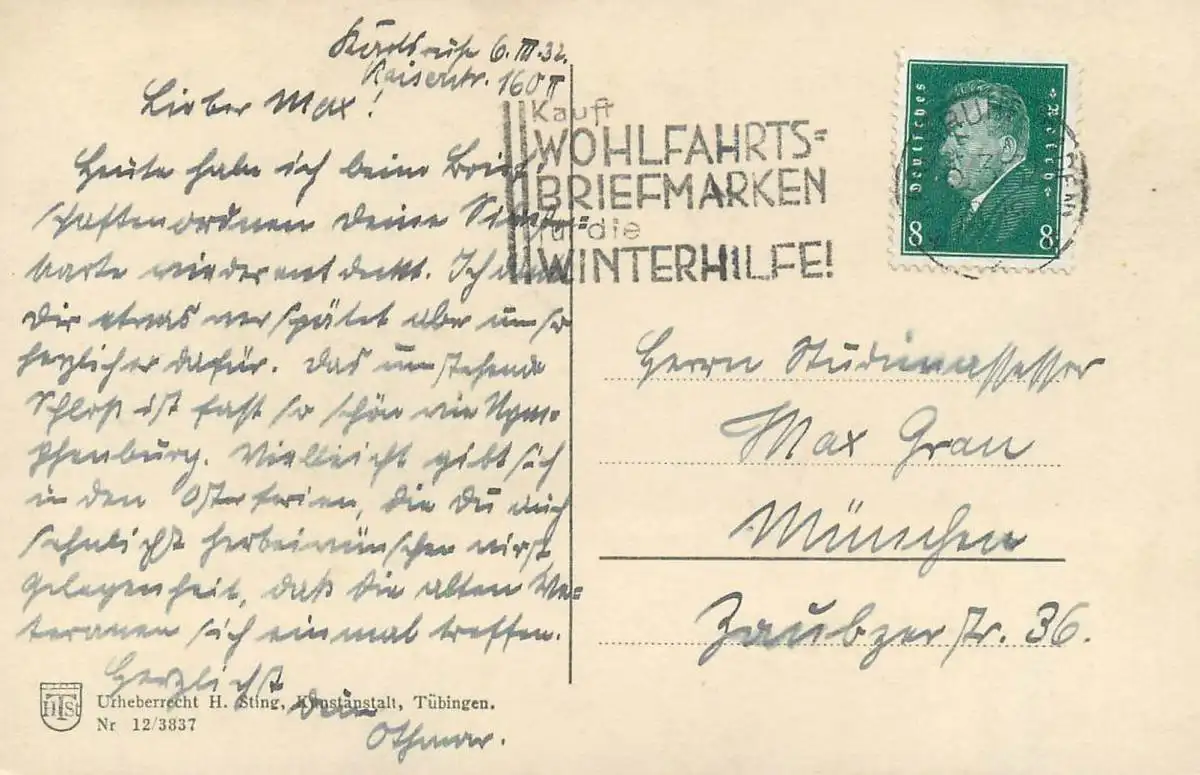 Karlsruhe 6.III.32.
Kaiserstr. 160 II
Lieber Max!
Heute habe ich beim Brief-
schaftenordnen deine
karte wiederentdeckt. Ich
Dir etwas verspätet aber um so
herzlicher dafür. Das umstehende
Schloß ist fast so schön wie Nym-
phenburg. Vielleicht gibt sich
in den Osterferien, die Du auch
sehnlichst herbeiwünschen wirst
Gelegenheit, daß die alten Ve-
teranen sich einmal treffen.
Herzlichst
Dein
Othmar.
Urheberrecht H. Sting, Kunstanstalt, Tübingen.
Nr 12/3837
HSt
Kauft
WOHLFAHRTS-
BRIEFMARKEN
für die
WINTERHILFE!
Deutsches Reich
8 8
Herrn Studienassessor
Max Gran
München
Zaubzerstr. 36.